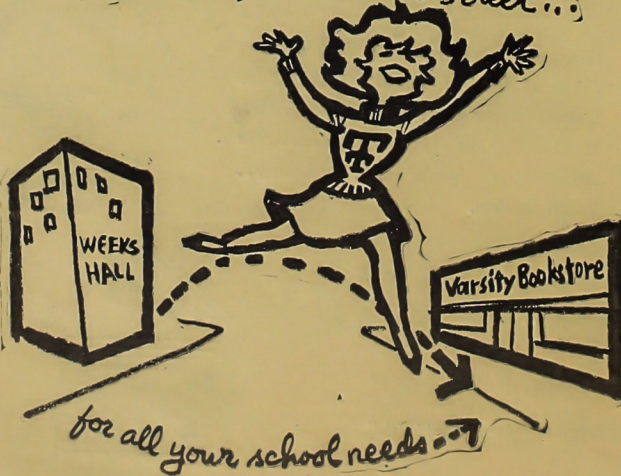 street...
TT
WEEKS
HALL
Varsity Bookstore
for all your school needs...